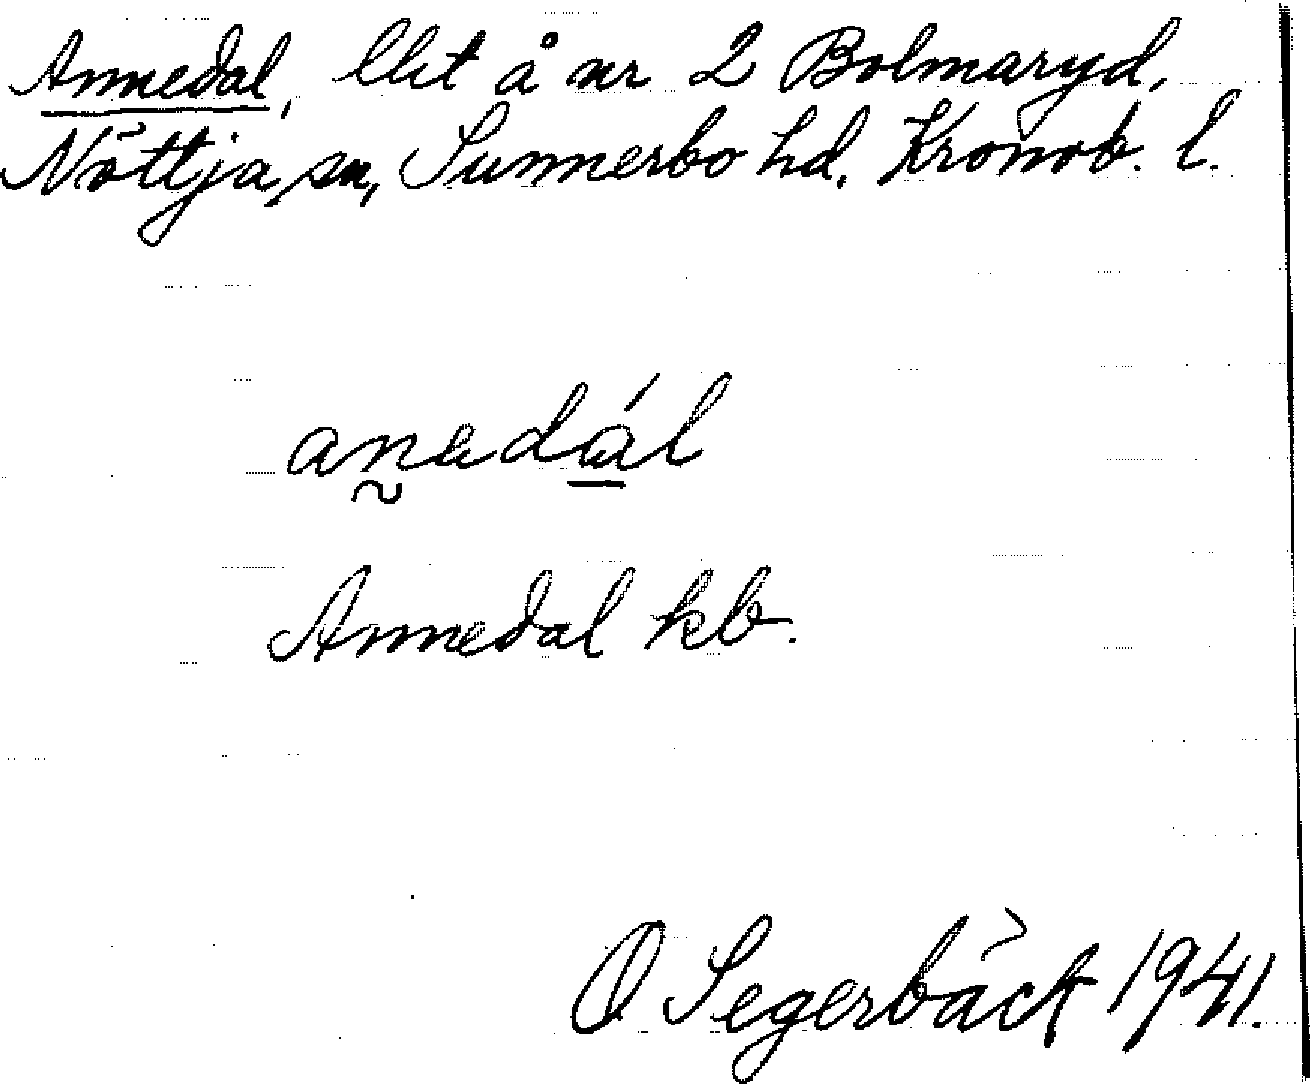 Annedal, lht å nr 2 Bolmaryd,
Nöttja sn, Sunnerbo hd. Kronob. l.
anadál
Annedal kb.
O Segerbäck 1941.